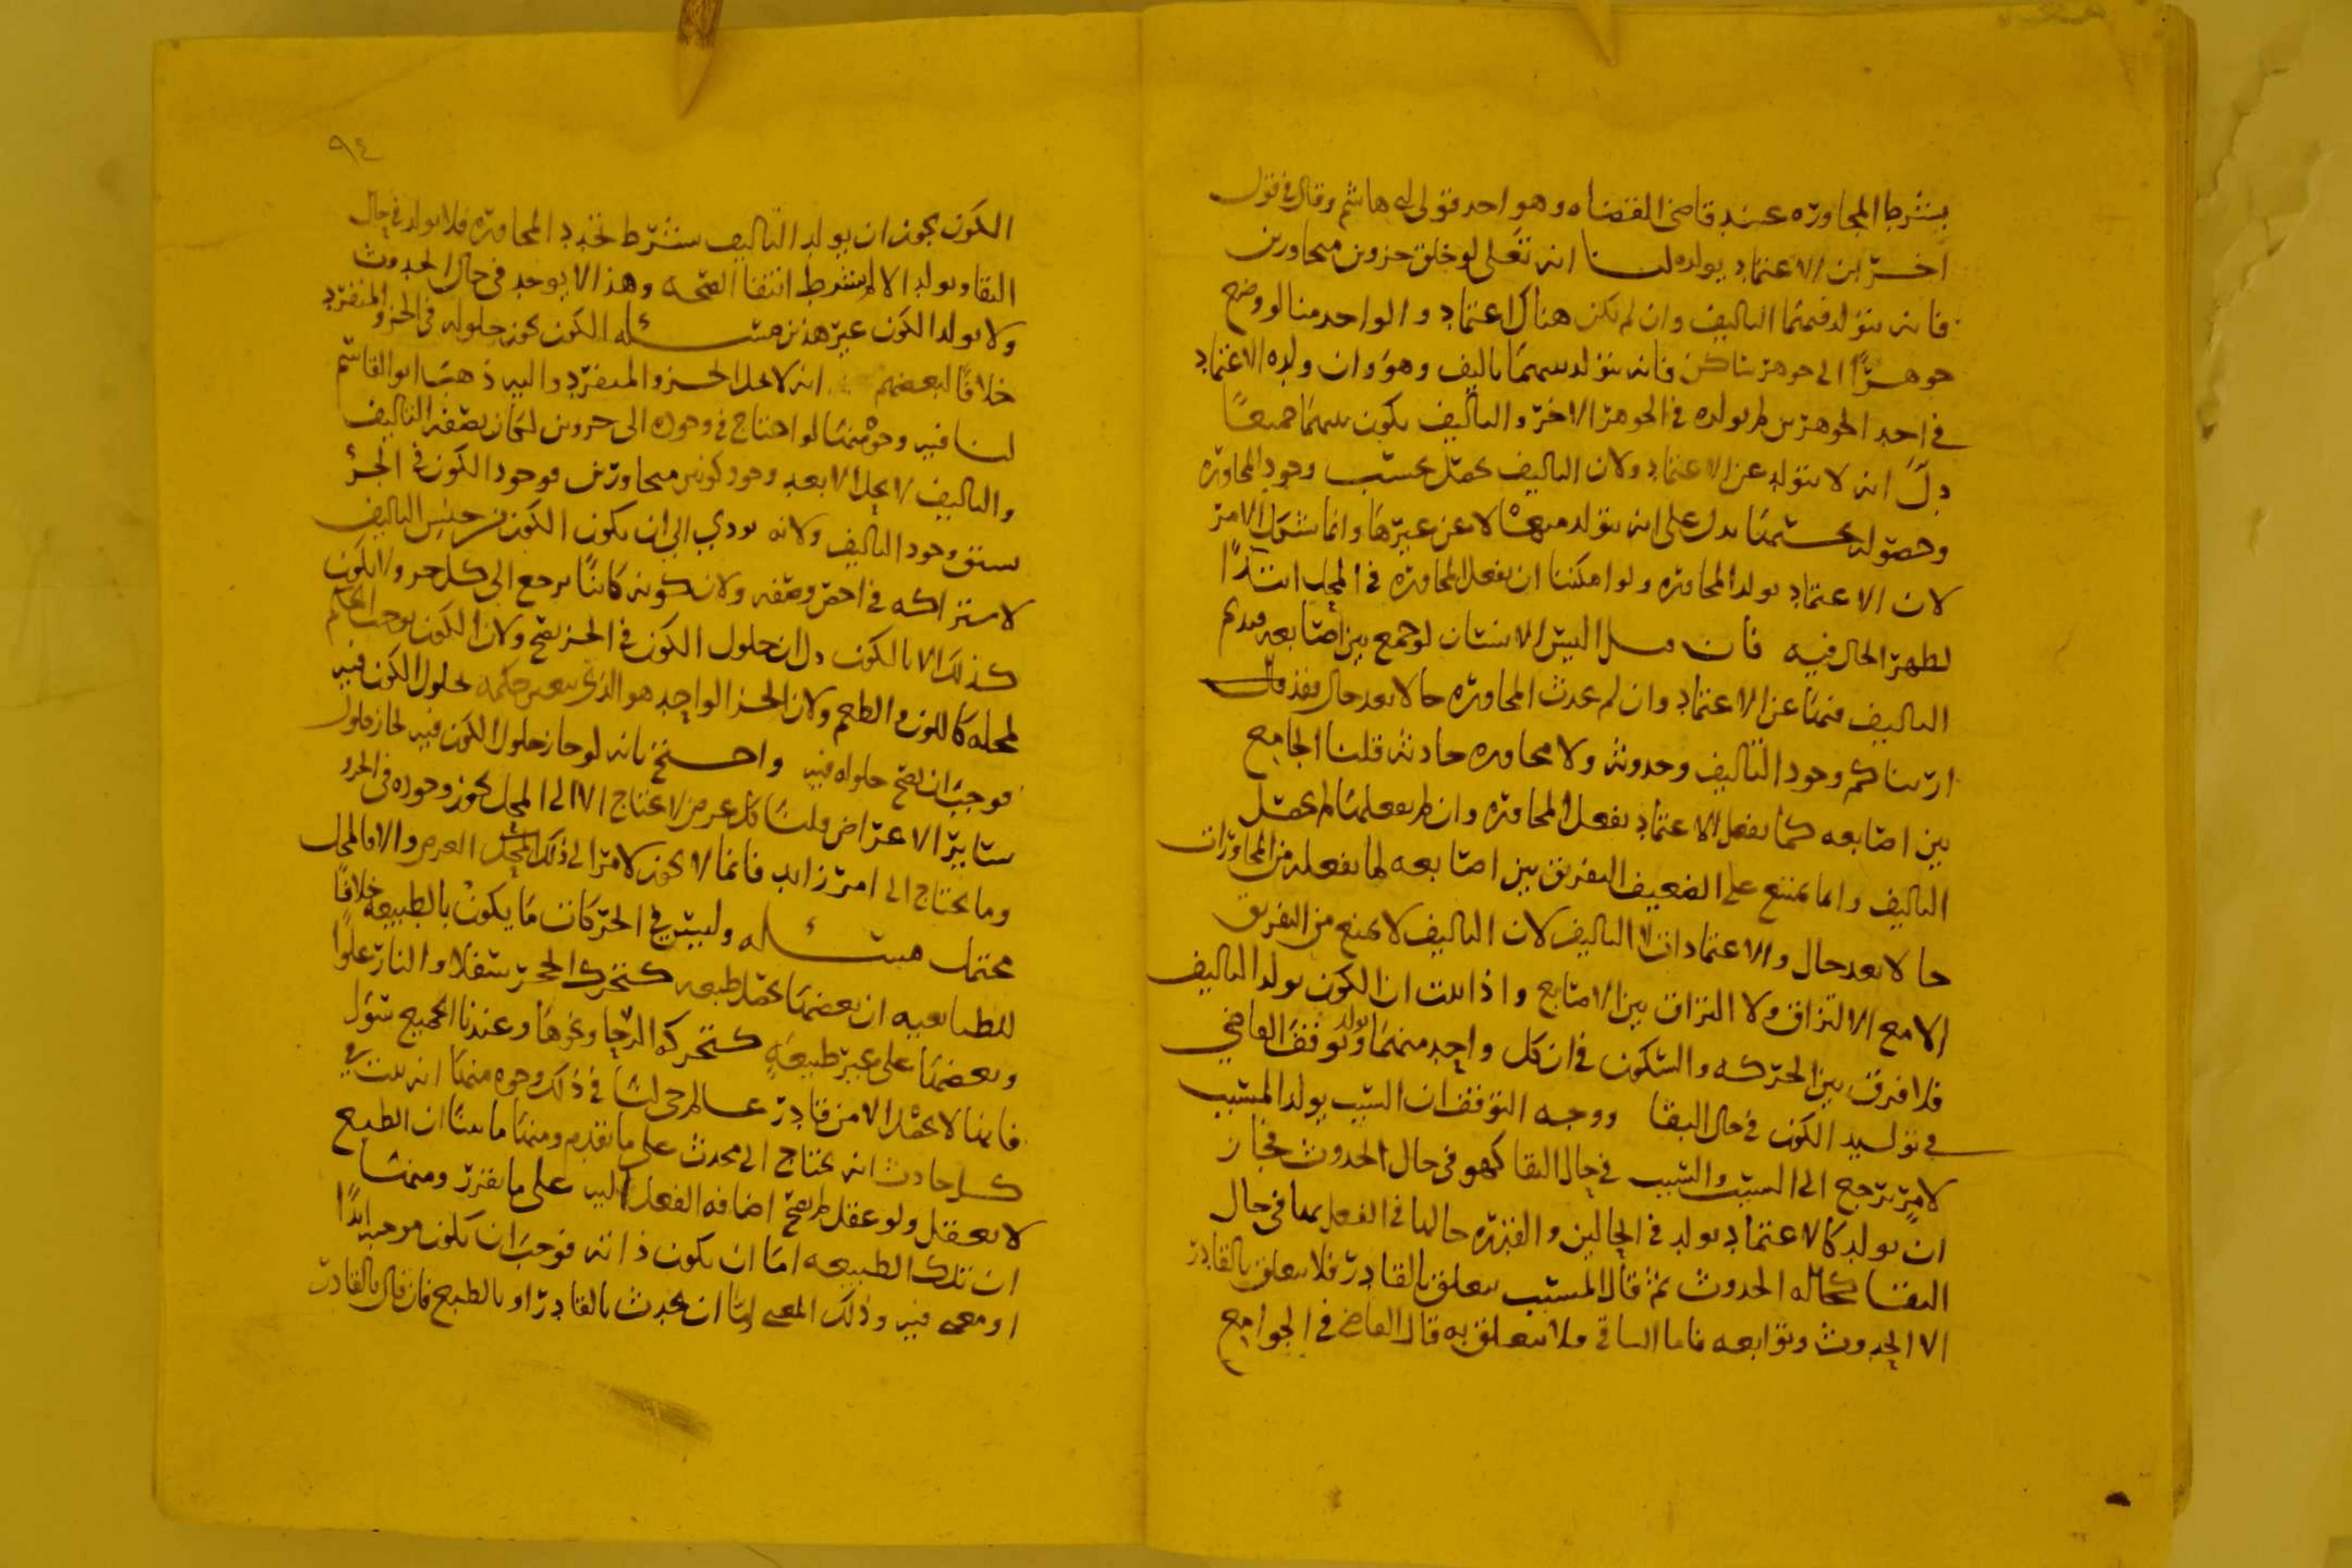 بشرط المجاورة عند قاضي القضاه وهو احد قولي ابي هاشم وقال في قول
اخر ان الاعتماد يولده لنا انه تعلى لو خلق جزوين متجاورين
فانه يتولد فيهما التاليف وان لم يكن هناك اعتماد والواحد منا لو وضع
جوهرًا الى جوهر ساكن فانه يتولد بينهما تاليف وهو وان ولده الاعتماد
في احد الجوهرين لم يولده في الجوهر الاخر والتاليف يكون بينهما جميعًا
دل انه لا يتولد عن الاعتماد ولان التاليف يحصل بحسب وجود المجاورة
وحصوله بحسبها يدل على انه يتولد منها لا عن غيرها وانما يشكل الامر
لان الاعتماد يولد المجاورة ولو امكننا ان نفعل المجاورة في المحل ابتدًا
لظهر الحال فيه فان قيل اليس الانسان لو جمع بين اصابعه
التاليف فيها عن الاعتماد وان لم تحدث المجاورة حالا بعد حال فقد
اريناكم وجود التاليف وحدوثه ولا مجاوره حادثه قلنا الجامع
بين اصابعه كما يفعل الاعتماد يفعل المجاورة وان لم يفعلها لم يحصل
التاليف وانما يمتنع على الضعيف التفريق بين اصابعه لما يفعله من المجاورات
حالا بعد حال والاعتمادات لا التاليف لان التاليف لا يمنع من التفريق
الا مع الالتزاق ولا التزاق بين الاصابع واذا ثبت ان الكون يولد التاليف
فلا فرق بين الحركه والسكون في ان كل واحد منهما يولد وتوقف القاضي
في توليد الكون في حال البقا ووجه التوقف ان السبب يولد المسبب
لامر يرجع الى السبب والسبب في حال البقا كهو في حال الحدوث فجاز
ان يولد كالاعتماد يولد في الحالين والقدرة حالها في الفعل بها في حال
البقا كحاله الحدوث ثم قال المسبب يتعلق بالقادر فلا يتعلق بالقادر
الا الحدوث وتوابعه فاما الباقي فلا يتعلق به قال القاضي في الجوامع
٩٤
الكون يجوز ان يولد التاليف بشرط تجدد المجاورة فلا يولد في حال
البقا ويولد الالم بشرط انتفا الصحه وهذا لا يوجد في حال الحدوث
ولا يولد الكون غير هذين مسئله الكون يجوز حلوله في الجزو المنفرد
خلافًا لبعضهم انه لا يحل الجزو المنفرد واليه ذهب ابو القاسم
لنا فيه وجوه منها لو احتاج في وجوده الى جزوين لكان بصفه التاليف
والتاليف لا يحل الا بعد وجود كونين متجاورين فوجود الكون في الجزء
سبق وجود التاليف ولانه يودي الى ان يكون الكون من جنس التاليف
لاشتراكه في اخص وصفه ولان كونه كائنًا يرجع الى كل جزو ولا يكون
كذلك الا بالكون دل ان حلول الكون في الجزء يصح ولان الكون يوجب الحكم
لمحله كاللون والطعم ولان الجزء الواحد هو الذي يتغير حكمه بحلول الكون فيه
فوجب ان يصح حلوله فيه واحتج بانه لو جاز حلول الكون فيه لجاز حلول
سائر الاعراض قلنا كل عرض لا يحتاج الا الى المحل يجوز وجوده في الجزو
وما يحتاج الى امر زايد فانما لا يجوز لامر الى ذلك المحل العرض والا فالمحل
محتمل مسئله وليس في الحركات ما يكون بالطبيعه خلافًا
للطبايعيه ان بعضها يحصل طبعه كتحرك الحجر سفلا والنار علوًا
وبعضها على غير طبيعه كتحركه الرحا ونحوها وعندنا الجميع سوَا
فانها لا تحصل الا من قادر عالم حي لنا في ذلك وجوه منها انه ثبت في
كل حادث انه يحتاج الى محدث على ما تقدم ومنها ما بينا ان الطبع
لا يعقل ولو عقل لم يصح اضافه الفعل اليه على ما تقرر ومنها
ان تلك الطبيعه اما ان يكون ذاته فوجب ان يكون موجبًا ابدًا
او معنى فيه وذلك المعنى اما ان يحدث بالقادر او بالطبع فان قال بالقادر